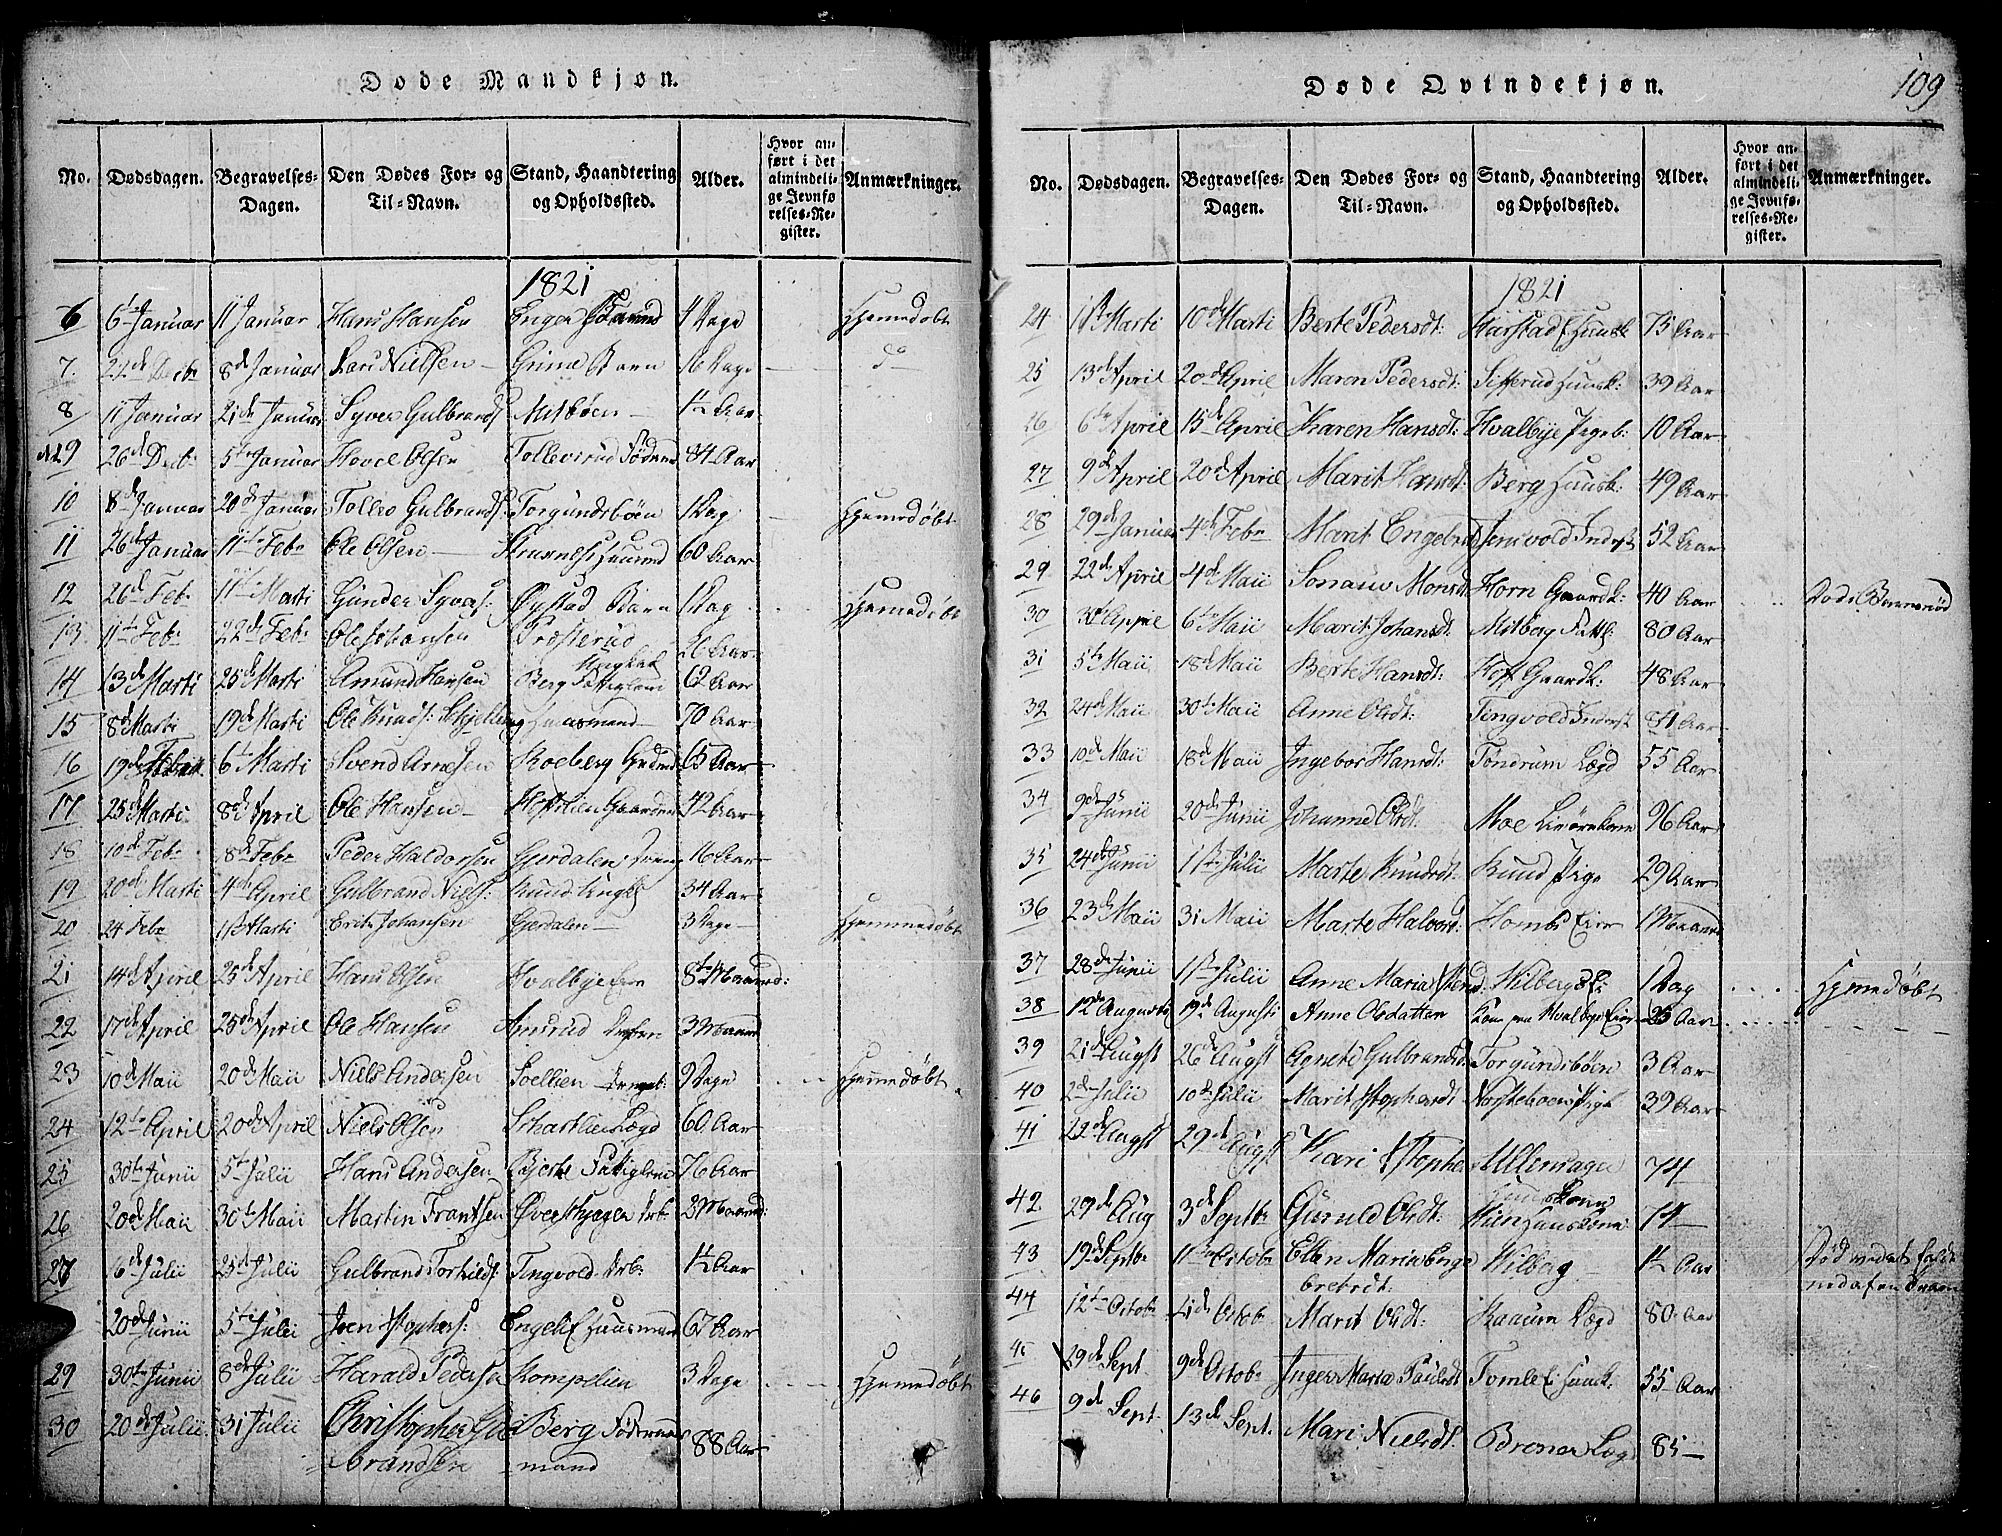 Døde Mandkjøn.
No. Dødsdagen. Begravelses-Dagen. Den Dødes For- og Til-Navn. Stand, Haandtering og Opholdssted. Alder. Hvor anført i det almindelige Jevnførelses-Register. Anmærkninger.
1821
6 6t Januar 11 Januar Hans Hansen Enger 4 Dage Hjemmedøbt
7. 22de Decb 8de Januar Lars Nielsen Grime Barn 16 Dage do
8 11 Januar 21de Januar Syver Gulbrands Midbøen 1½ Aar
9 26de Decb 5te Januar Hovel Olsen Tollevsrud 84 Aar
10 8de Januar 20de Januar Tollev Gulbrands: Torgundsbøen 1 Dag Hjemmedøbt
11 26de Januar 11te Febr Ole Olsen 60 Aar
12 26de Feb 11te Marti Gunder Syvers: Øystad Barn 1 Dag Hjemmedøbt
13. 11te Febr 22de Febr Ole Hansen Prosterud 26 Aar
14 13de Marti 25de Marti Amund Hansen Berg Fattiglem 62 Aar
15 8de Marti 19de Marti Ole Knuds: Schjelberg Huusmand 70 Aar
16 19de Febr. 6t Marti Svend Arnesen Roeberg 65 Aar
17 25de Marti 8de April Ole Hansen Hofslien Gaardm 42 Aar
18 10de Febr 18de Febr Peder Haldorsen Gjerdalen 16 Aar
19 20de Marti 4de April Gulbrand Niels: Ruud Ungk 34 Aar
20 24 Febr 1ste Marti Erik Johansen Gjerdalen 3 Dage Hjemmedøbt
21 14de April 25de April Hans Olsen Hvalbye Eier 8te Maaned:
22 17de April 25de April Ole Hansen Amsrud 3 Maaned
23 10de Maii 20de Maii Niels Andersen Soellien 9 Dage Hjemmedøbt
24 12te April 20de April Niels Olsen Schartlien Lægd 60 Aar
25 30te Junii 5te Julii Hans Andersen Bjerke Fattiglem 76 Aar
26 20de Maii 30te Maii Martin Frantsen Øvre Schjager 2 Maaned:
27 16de Julii 25de Julii Gulbrand Torkilds: Tingvold 1½ Aar
20de Junii 5te Julii Joen Stophers: Engelie Huusmand 67 Aar
29 30te Junii 8de Julii Harald Pedersen Kompelien 3 Dage Hjemmedøbt
30 20de Julii 31 Julii Christopher Gul Berg Føderaads 88 Aar
brandsen mand
Døde Qvindekjøn.
109
No. Dødsdagen. Begravelses-Dagen. Den Dødes For- og Til-Navn. Stand, Haandtering og Opholdssted. Alder. Hvor anført i det almindelige Jevnførelses-Register. Anmærkninger.
1821
24 1ste Marti 10de Marti Berte Pedersdt: Harstad E Huusk 75 Aar
25 13de April 20de April Maren Pedersdt: Sifferud Huusk: 39 Aar
26 6te April 15de April Karen Hansdt: Hvalbye Pigeb: 10 Aar
27 9de April 20de April Marit Hansdt: Berg Huusk: 49 Aar
28 29de Januar 4de Febr Marit Engebret Jensvold Inderst 52 Aar
29 22de April 4de Maii Monsdt Horn Gaardk: 40 Aar Døde i Barnenød
30 30te April 6te Maii Marit Johansdt: Midberg Fattl: 80 Aar
31 5te Maii 18de Maii Berte Hansdt: Hoff Gaardk: 48 Aar
32 24de Maii 30te Maii Anne Olsdt: Tingvold Inderst 81 Aar
33 10de Maii 18de Maii Ingebor Hansdt: Tøndrum Lægd 55 Aar
34 9de Junii 20de Junii Johanne Olsdt: Moe 96 Aar
35 24de Junii 1ste Julii Marte Knudsdt: Ruud Pige 29 Aar
36 23de Maii 31 Maii Marte Halvors: Eier 1 Maaned
37 28de Junii 1ste Julii Anne Maria Wilberg E: 1 Dag Hjemmedøbt
38 12de Augusti 19de Augusti Anne Olsdatter Kone paa Hvalbye Eier 25 Aar
39 21de Augst 26de Augst Agnete Gulbrandsd: Torgundsbøen 3 Aar
40 2de Julii 10de Julii Marit Stophersdt Pige 39 Aar
41 22de Augst 29de Augst Kari Stophers Ullensager 74
Huuskone
42 29de Aug 3de Septbr Guruld Olsdt: Huuskone 74
43 19de Septbr 11te Octobr Ellen Maria Enge Wilberg 1½ Aar Død ved et Fald
bretsdt: ned af en Traen
44 12te Octobr 21de Octobr Marit Olsdt: Raaum Lægd 80 Aar
45 29de Sept 9de Octobr Inger Maria Paulsdt Tomle E Huusk: 55 Aar
46 9de Sept. 13de Sept. Mari Nielsdt: Lægd 85